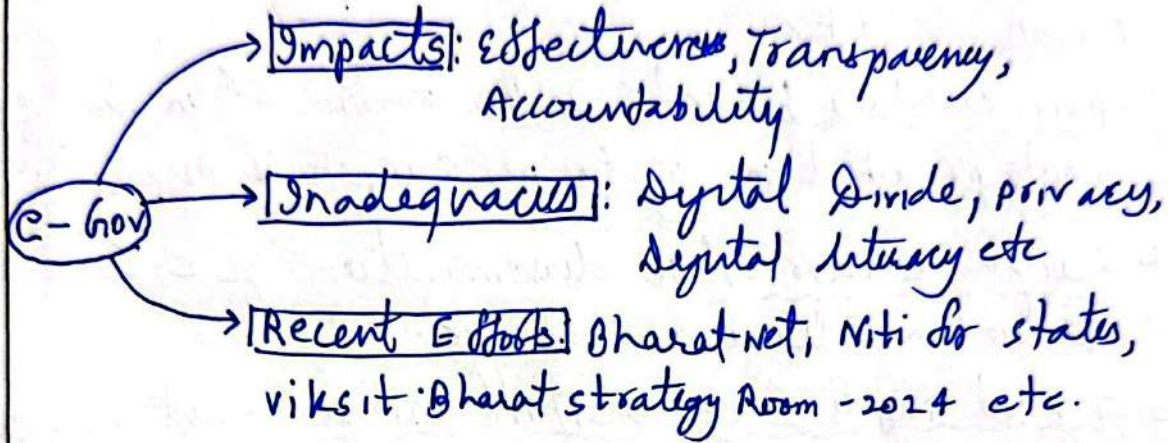 Impacts: Effectiveness, Transparency,
Accountability
e-Gov
Inadequacies: Digital Divide, privacy,
Digital literacy etc
Recent Efforts: BharatNet, Niti for states,
viksit Bharat strategy Room - 2024 etc.